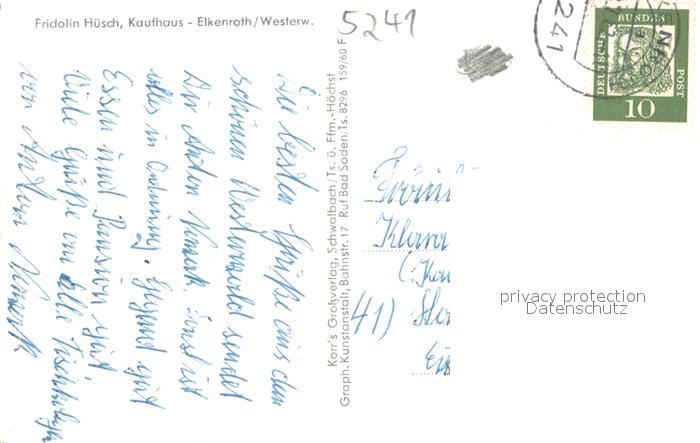 Fridolin Hüsch, Kaufhaus - Elkenroth/Westerw.
5241
241
DEUTSCHE BUNDESPOST
10
Die besten Grüße aus dem
schönen Westerwald sendet
Dir Anton
alles in Ordnung. Gegend gut
Essen und Pension gut
Viele Grüße an alle
von Anton
Korr's Großverlag, Schwalbach/Ts. ü. Ffm.-Höchst
Graph. Kunstanstalt, Bahnstr. 17 Ruf Bad Soden/Ts. 8296 159/60 F
Klara
41)
privacy protection
Datenschutz